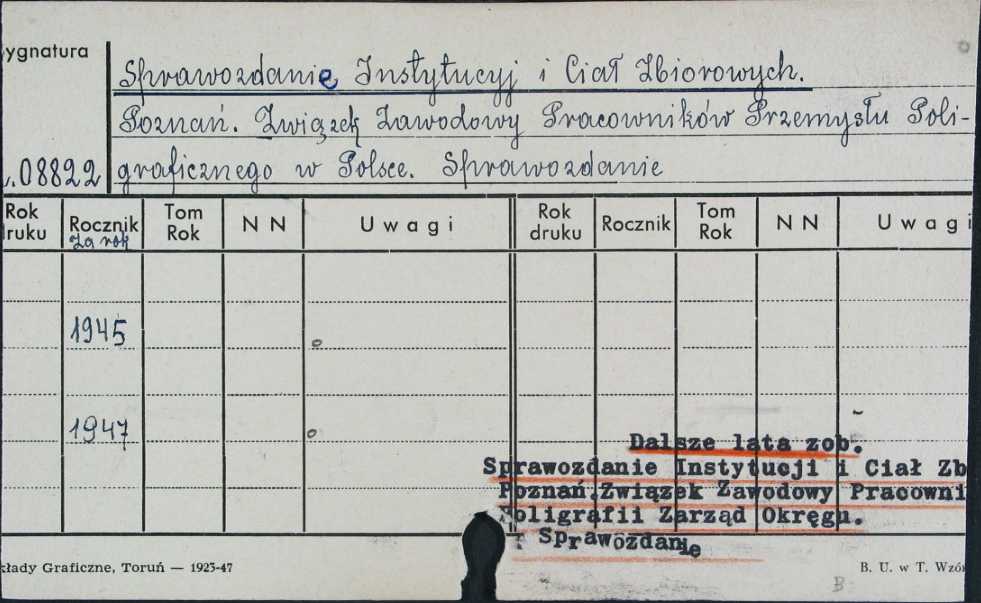 ygnatura
Sprawozdanie Instytucyj i Ciał Zbiorowych.
Poznań. Związek Zawodowy Pracowników Przemysłu Poli-
.08822 graficznego w Polsce. Sprawozdanie
Rok druku Rocznik Tom Rok N N Uwagi Rok druku Rocznik Tom Rok N N Uwagi
za rok
1945
1947
Dalsze lata zob.
Sprawozdanie Instytucji i Ciał Zb
Poznań.Związek Zawodowy Pracowni
Poligrafii Zarząd Okręgu.
Sprawozdanie
kłady Graficzne, Toruń — 1923-47 B. U. w T. Wzór
B